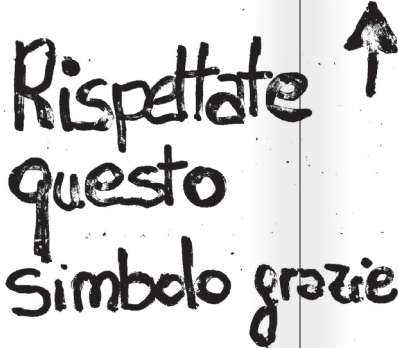 Rispettate
questo
simbolo grazie